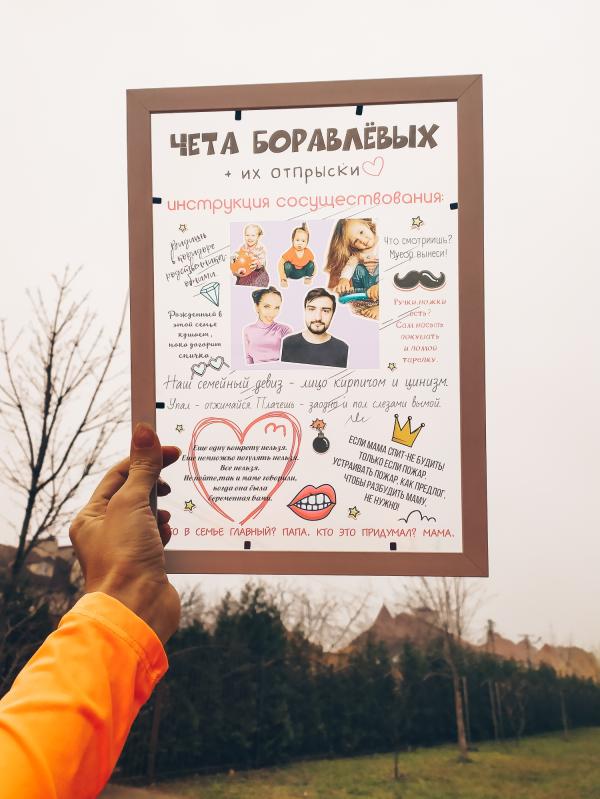 ЧЕТА БОРАВЛЁВЫХ
+ их отпрыски
инструкция сосуществования:
в коридоре
Рожденный в
этой семье
кушает,
пока догорит
спичка
Что смотриишь?
Мусор вынеси!
Ручки, ножки
есть?
Сам насыпь
покушать
и помой
тарелку.
Наш семейный девиз - лицо кирпичом и цинизм.
Упал - отжимайся. Плачешь - заодно и пол слезами вымой.
Еще одну конфету нельзя.
Еще немножко погулять нельзя.
Все нельзя.
Не нойте, так и маме говорили,
когда она была
беременная вами.
ЕСЛИ МАМА СПИТ-НЕ БУДИТЬ
ТОЛЬКО ЕСЛИ ПОЖАР.
УСТРАИВАТЬ ПОЖАР, КАК ПРЕДЛОГ,
ЧТОБЫ РАЗБУДИТЬ МАМУ,
НЕ НУЖНО!
ТО В СЕМЬЕ ГЛАВНЫЙ? ПАПА. КТО ЭТО ПРИДУМАЛ? МАМА.